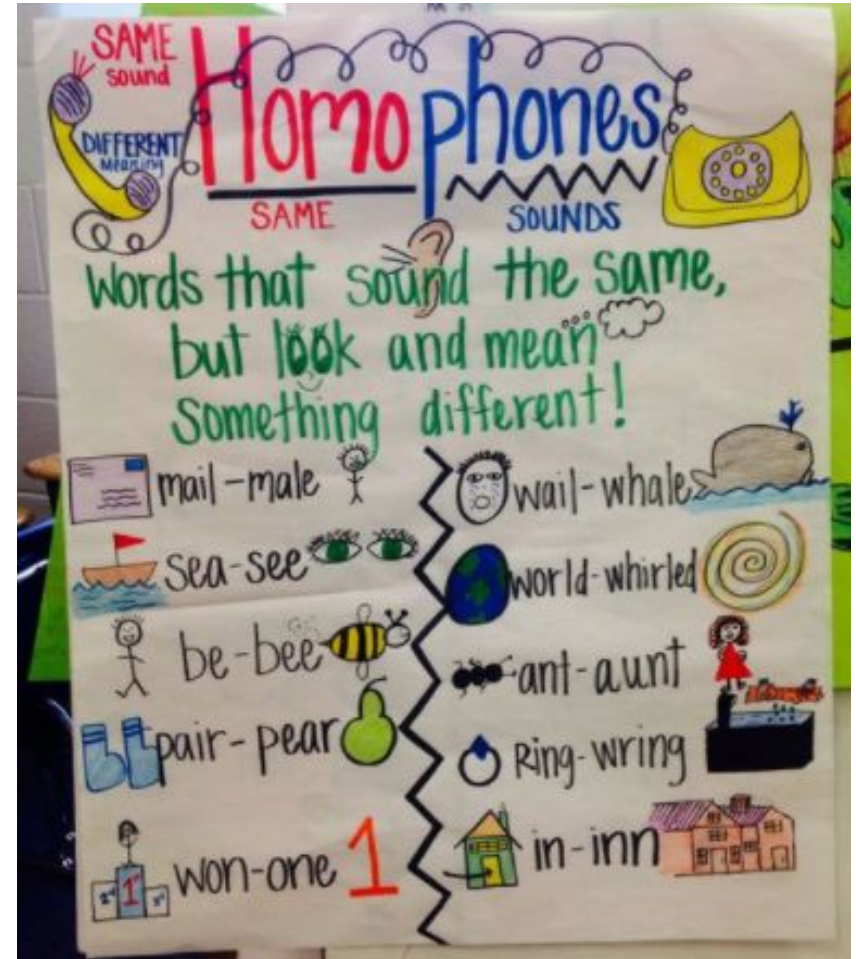 SAME
sound
DIFFERENT
Meaning
Homophones
SAME SOUNDS
Words that sound the same,
but look and mean
something different!
mail-male
sea-see
be-bee
pair-pear
won-one 1
wail-whale
world-whirled
ant-aunt
Ring-wring
in-inn